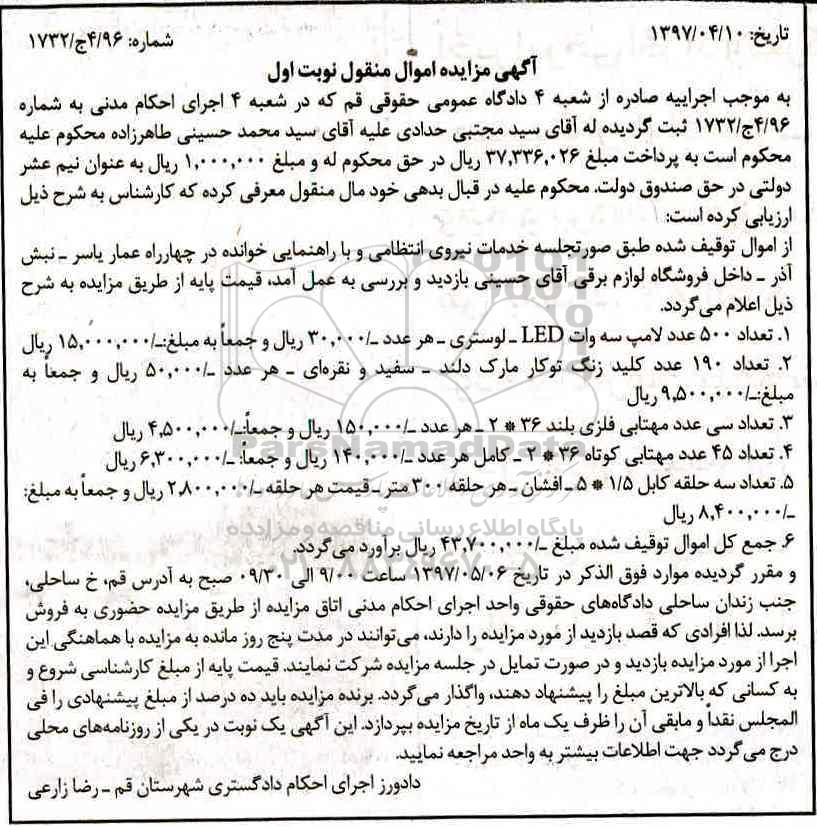 تاریخ: ۱۳۹۷/۰۴/۱۰
شماره: ۴/۹۶ج/۱۷۳۲
آگهی مزایده اموال منقول نوبت اول
به موجب اجراییه صادره از شعبه ۴ دادگاه عمومی حقوقی قم که در شعبه ۴ اجرای احکام مدنی به شماره
۴/۹۶ج/۱۷۳۲ ثبت گردیده له آقای سید مجتبی حدادی علیه آقای سید محمد حسینی طاهرزاده محکوم علیه
محکوم است به پرداخت مبلغ ۳۷,۳۳۶,۰۲۶ ریال در حق محکوم له و مبلغ ۱,۰۰۰,۰۰۰ ریال به عنوان نیم عشر
دولتی در حق صندوق دولت. محکوم علیه در قبال بدهی خود مال منقول معرفی کرده که کارشناس به شرح ذیل
ارزیابی کرده است:
از اموال توقیف شده طبق صورتجلسه خدمات نیروی انتظامی و با راهنمایی خوانده در چهارراه عمار یاسر ـ نبش
آذر ـ داخل فروشگاه لوازم برقی آقای حسینی بازدید و بررسی به عمل آمد، قیمت پایه از طریق مزایده به شرح
ذیل اعلام می‌گردد.
۱. تعداد ۵۰۰ عدد لامپ سه وات LED ـ لوستری ـ هر عدد ـ/۳۰,۰۰۰ ریال و جمعاً به مبلغ:ـ/۱۵,۰۰۰,۰۰۰ ریال
۲. تعداد ۱۹۰ عدد کلید زنگ توکار مارک دلند ـ سفید و نقره‌ای ـ هر عدد ـ/۵۰,۰۰۰ ریال و جمعاً به
مبلغ:ـ/۹,۵۰۰,۰۰۰ ریال
۳. تعداد سی عدد مهتابی فلزی بلند ۳۶ * ۲ ـ هر عدد ـ/۱۵۰,۰۰۰ ریال و جمعاً:ـ/۴,۵۰۰,۰۰۰ ریال
۴. تعداد ۴۵ عدد مهتابی کوتاه ۳۶ * ۲ ـ کامل هر عدد ـ/۱۴۰,۰۰۰ ریال و جمعا: ـ/۶,۳۰۰,۰۰۰ ریال
۵. تعداد سه حلقه کابل ۱/۵ * ۵ ـ افشان ـ هر حلقه ۳۰۰ متر ـ قیمت هر حلقه ـ/۲,۸۰۰,۰۰۰ ریال و جمعاً به مبلغ:
ـ/۸,۴۰۰,۰۰۰ ریال
۶. جمع کل اموال توقیف شده مبلغ ـ/۴۳,۷۰۰,۰۰۰ ریال برآورد می‌گردد.
و مقرر گردیده موارد فوق الذکر در تاریخ ۱۳۹۷/۰۵/۰۶ ساعت ۹/۰۰ الی ۰۹/۳۰ صبح به آدرس قم، خ ساحلی،
جنب زندان ساحلی دادگاه‌های حقوقی واحد اجرای احکام مدنی اتاق مزایده از طریق مزایده حضوری به فروش
برسد. لذا افرادی که قصد بازدید از مورد مزایده را دارند، می‌توانند در مدت پنج روز مانده به مزایده با هماهنگی این
اجرا از مورد مزایده بازدید و در صورت تمایل در جلسه مزایده شرکت نمایند. قیمت پایه از مبلغ کارشناسی شروع و
به کسانی که بالاترین مبلغ را پیشنهاد دهند، واگذار می‌گردد. برنده مزایده باید ده درصد از مبلغ پیشنهادی را فی
المجلس نقداً و مابقی آن را ظرف یک ماه از تاریخ مزایده بپردازد. این آگهی یک نوبت در یکی از روزنامه‌های محلی
درج می‌گردد جهت اطلاعات بیشتر به واحد مراجعه نمایید.
دادورز اجرای احکام دادگستری شهرستان قم ـ رضا زارعی
ParsNamadData
پایگاه اطلاع رسانی مناقصه و مزایده
۰۲۱-۸۸۳۴۹۶۷۰-۵